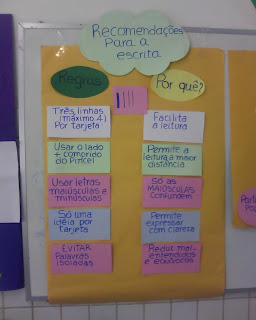 Recomendações
Para a
escrita
Regras
Por quê?
Três linhas
(máximo 4)
Por tarjeta
Facilita
a leitura
Usar o lado
+ comprido
do Pincel
Permite a
leitura à maior
distância
Usar letras
maiúsculas e
minúsculas
Só as
MAIÚSCULAS
Confundem
Só uma
idéia por
tarjeta
Permite
expressar
com clareza
EVITAR
Palavras
isoladas
Reduz mal-
entendidos
e equívocos